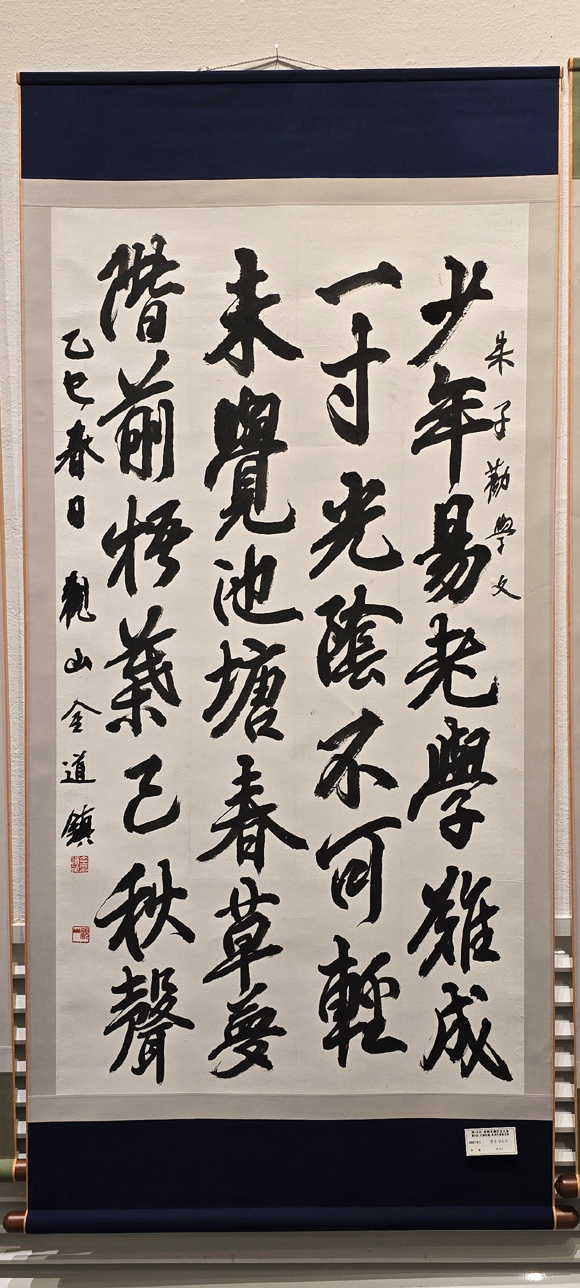 朱子勸學文
少年易老學難成
一寸光陰不可輕
未覺池塘春草夢
階前梧葉已秋聲
乙巳春日 觀山 金道鎮